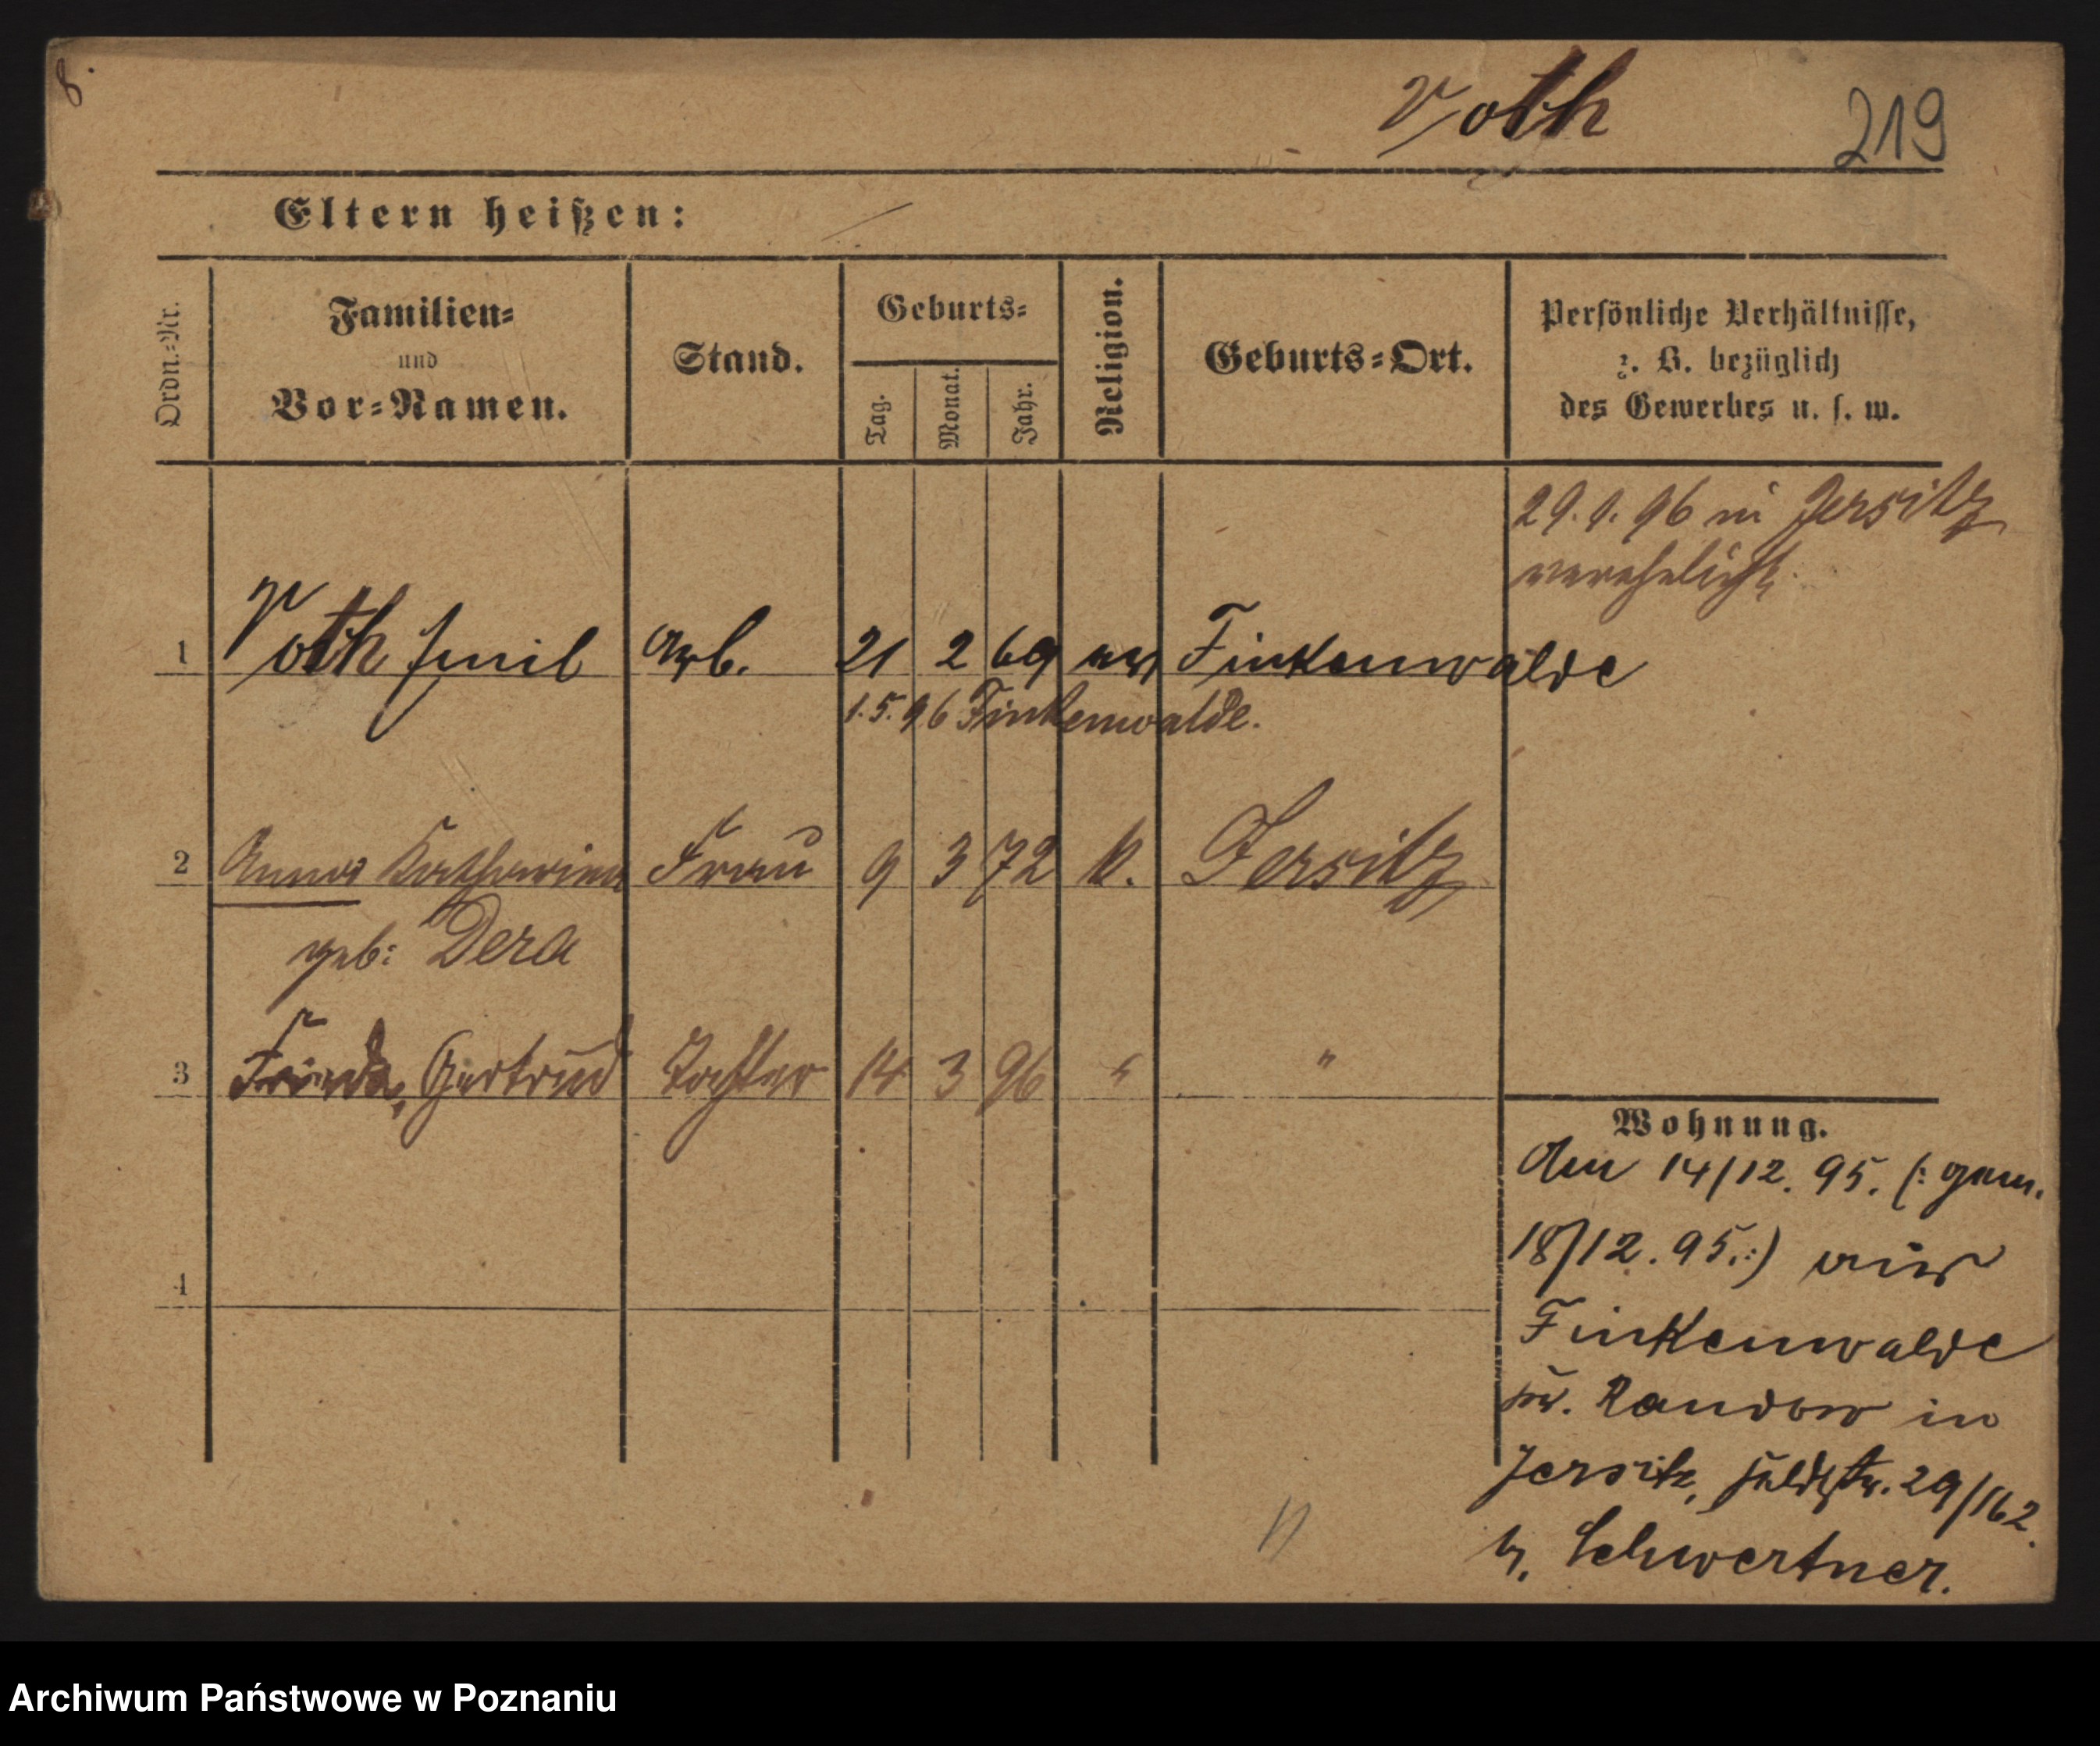 8.
Voth 219
Eltern heißen: /
Ordn.-Nr.
Familien-
und
Vor-Namen.
Stand.
Geburts-
Tag.
Monat.
Jahr.
Religion.
Geburts-Ort.
Persönliche Verhältnisse,
z. B. bezüglich
des Gewerbes u. s. w.
29.1.96 in Jersitz
verehelicht.
1 Voth Emil Arb. 21 2 69 ev Finkenwalde
1.5.96 Finkenwalde.
2 Anna Katharina Frau 9 3 72 k. Jersitz
geb: Dera
3 Frieda, Gertrud Tochter 14 3 96 " "
4
Wohnung.
Am 14/12. 95. (: gem.
18/12. 95.:) aus
Finkenwalde
Kr. Randow in
Jersitz, Feldstr. 29/162.
b. Schwertner.
Archiwum Państwowe w Poznaniu